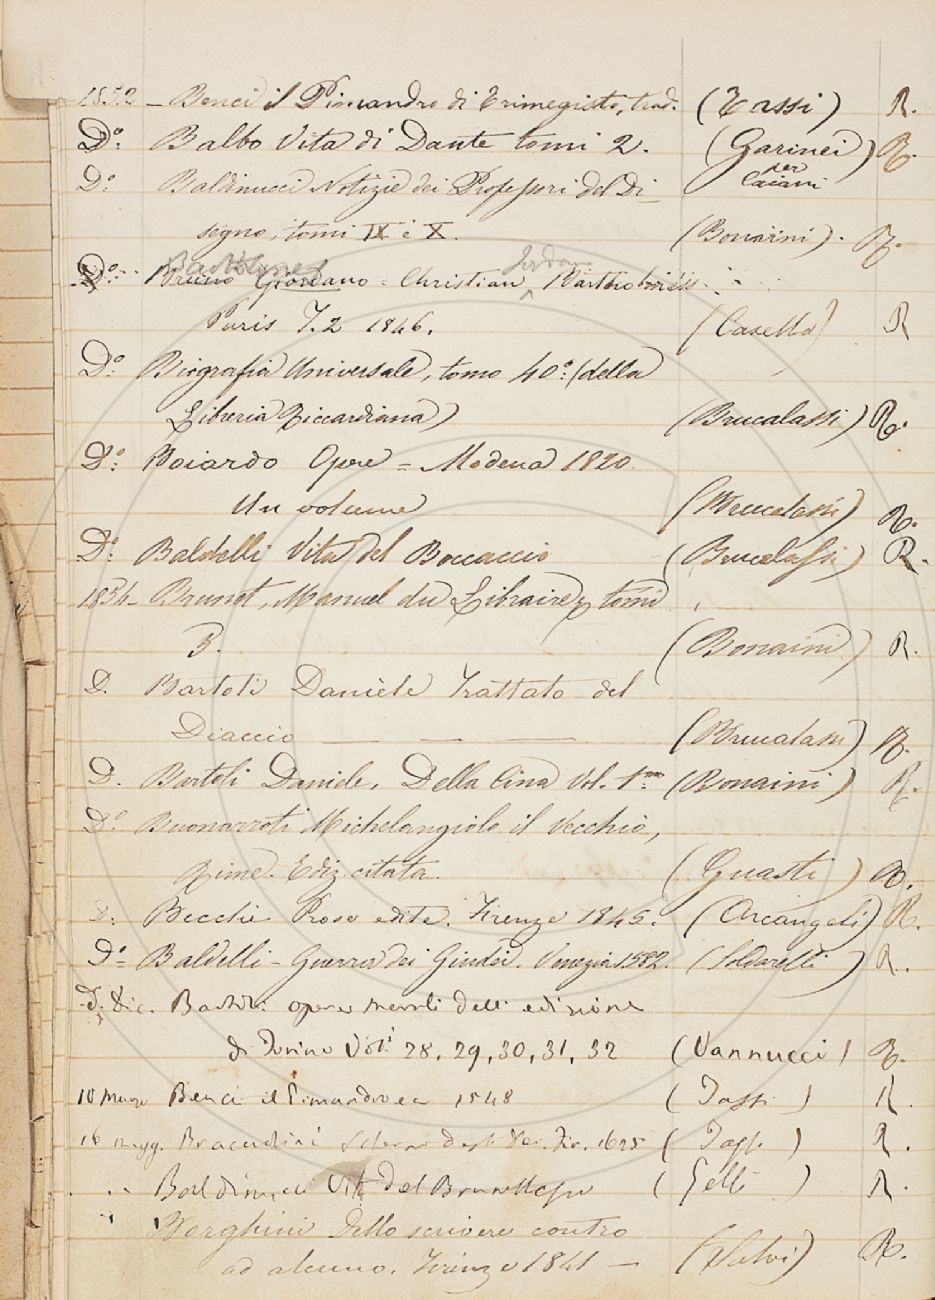 1852 – Benci il Pimandro di Trimegisto, trad. (Tassi) R.
Do: Balbo Vita di Dante tomi 2. (Garinei) R.
per
Do: Baldinucci Notizie dei Professori del Di- Caiani
segno, tomi IX e X. (Bonaini). R.
Bartolmes Jordan
Do: Bruno Giordano = Christian Bartholmess
Paris T. 2 1846. (Casella) R
Do: Biografia Universale, tomo 40o: (della
Libreria Riccardiana) (Brucalassi) R.
Do: Boiardo Opere = Modena 1820.
Un volume (Brucalassi) R.
Do: Baldelli Vita del Boccaccio (Brucalassi) R.
1854 – Brunet, Manuel du Libraire, tomi
3. (Bonaini) R.
D. Bartoli Daniele Trattato del
Diaccio — — — (Brucalassi) R.
D. Bartoli Daniele, Della Cina Vol. 1mo (Bonaini) R.
Do Buonarroti Michelangiolo il Vecchio,
Rime. Ediz. citata. (Guasti) R.
D: Becchi Prose edite. Firenze 1845. (Arcangeli) R.
Do= Baldelli – Guerra dei Giudei. Venezia 1582. (Soldarelli) R.
D. Dic. Bartoli opere morali dell' edizione
di Torino Voli 28, 29, 30, 31, 32 (Vannucci) R.
10 Marzo Benci il Pimandro ec 1548 (Tassi) R.
16 Magg. Bracciolini Scherno degli Dei. Fir. 1625 (Tassi) R.
" Baldinucci Vita del Brunellesco (Gelli) R.
" Borghini Dello scrivere contro
ad alcuno. Firenze 1841 – (Salvi) R.